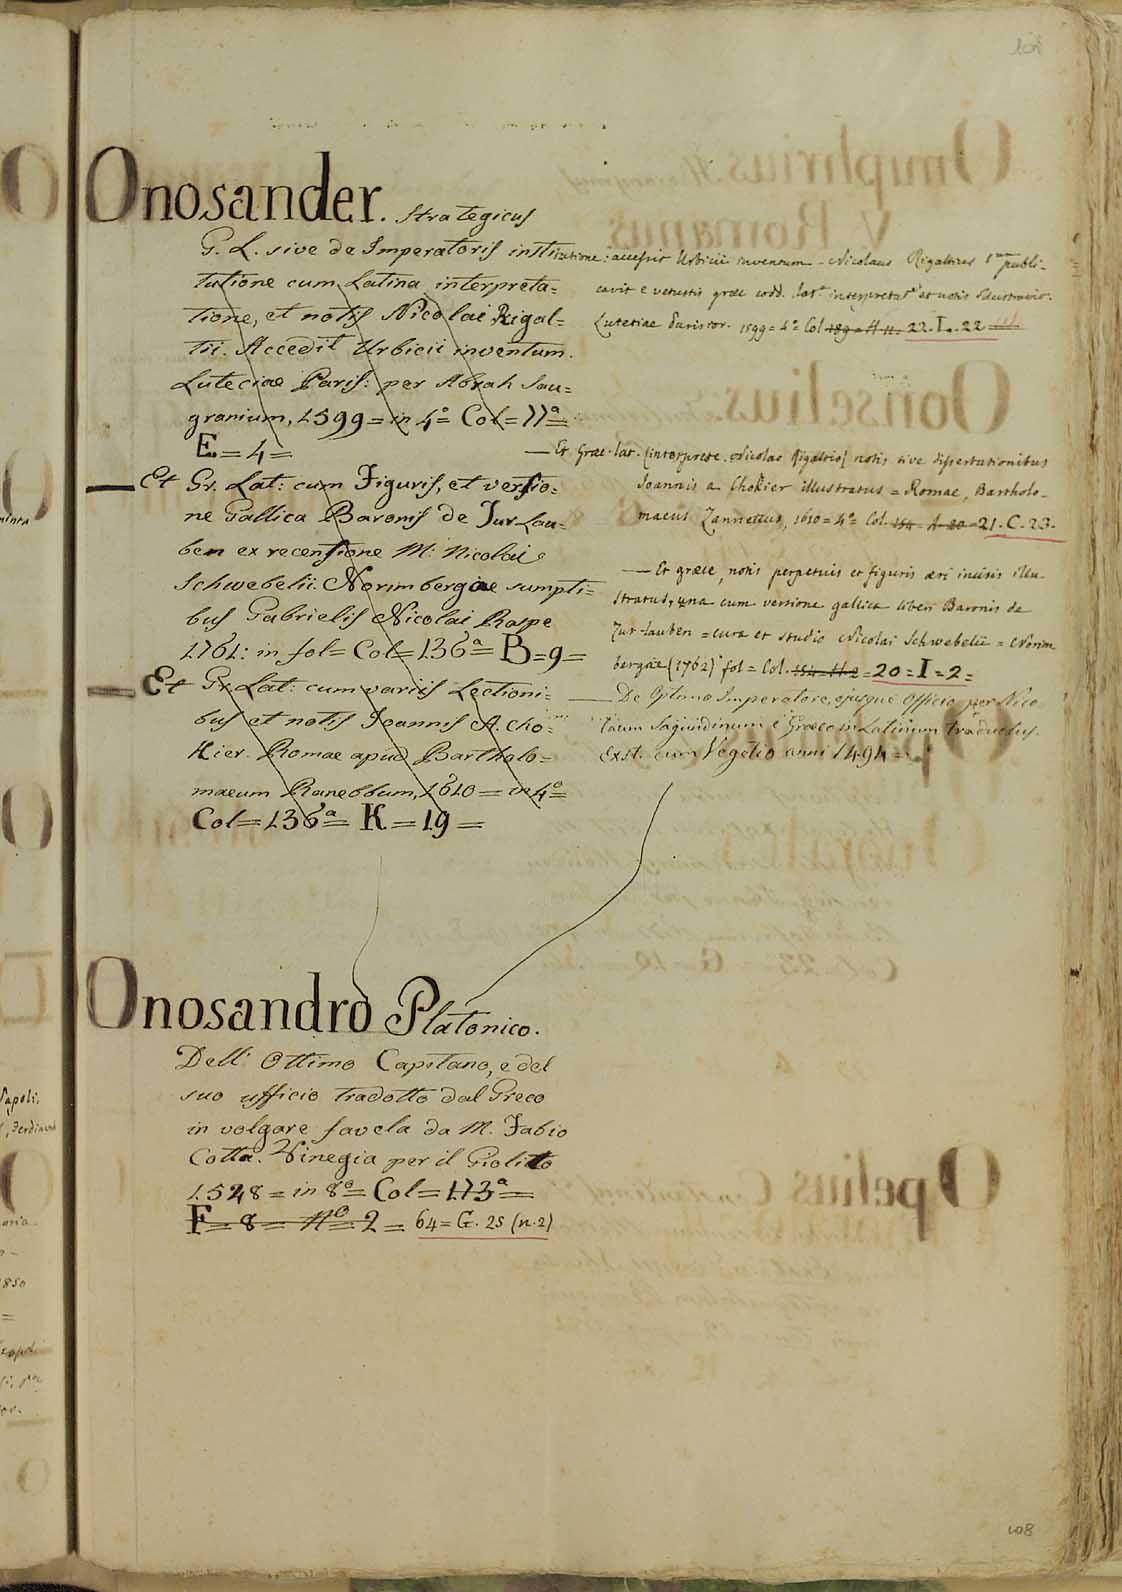 Onosander. Strategicus
G. L. sive de Imperatoris insti
tutione cum Latina interpreta=
tione, et notis Nicolai Rigal=
tii. Accedit Urbicii inventum.
Luteciae Paris: per Abrah Sau=
granium, 1599 = in 4º Col = 77ª
E = 4 =
— Et Gr. Lat: cum Figuris, et versio=
ne Gallica Baronis de Zur Lau=
ben ex recensione M: Nicolai
Schwebelii. Norimbergae sumpti=
bus Gabrielis Nicolai Raspe
1761: in fol = Col = 136ª = B = 9 =
— Et Gr. Lat: cum variis Lectioni=
bus et notis Joannis A. Cho=
Kier. Romae apud Bartholo=
maeum 1610 = in 4º =
Col = 136ª = K = 19 =
tutione: accessit Urbicii inventum - Nicolaus Rigaltius publi-
cavit e vetustis graec codd. lat. interpretat. et notis illustravit.
Lutetiae Parisior. 1599 = 4º Col 189 = H 11. 22. I. 22
— Et Graec. lat. (interprete Nicolao Rigaltio) notis sive dissertationibus
Joannis a Chokier illustratus = Romae, Bartholo-
maeus Zannettus, 1610 = 4º Col. 154 A 20 = 21. C. 23.
— Et graece, notis perpetuis et figuris aeri incisis illu-
stratus, una cum versione gallica liberi Baronis de
Zur-lauben = cura et studio Nicolai Schwebelii = Norim
bergae (1762) fol = Col. 154 H 2 = 20 = I = 2 =
— De Optimo Imperatore, ejusque Officio per Nico
laum Sagundinum e Graeco in Latinum traductus.
exst. cum Vegetio anni 1494 =
Onosandro Platonico.
Dell' Ottimo Capitano, e del
suo ufficio tradotto dal Greco
in volgare favela da M. Fabio
Cotta. Vinegia per il Giolito
1548 = in 8º = Col = 173ª =
F = 8 = Nº 2 = 64 = G. 25 (n. 2)
108